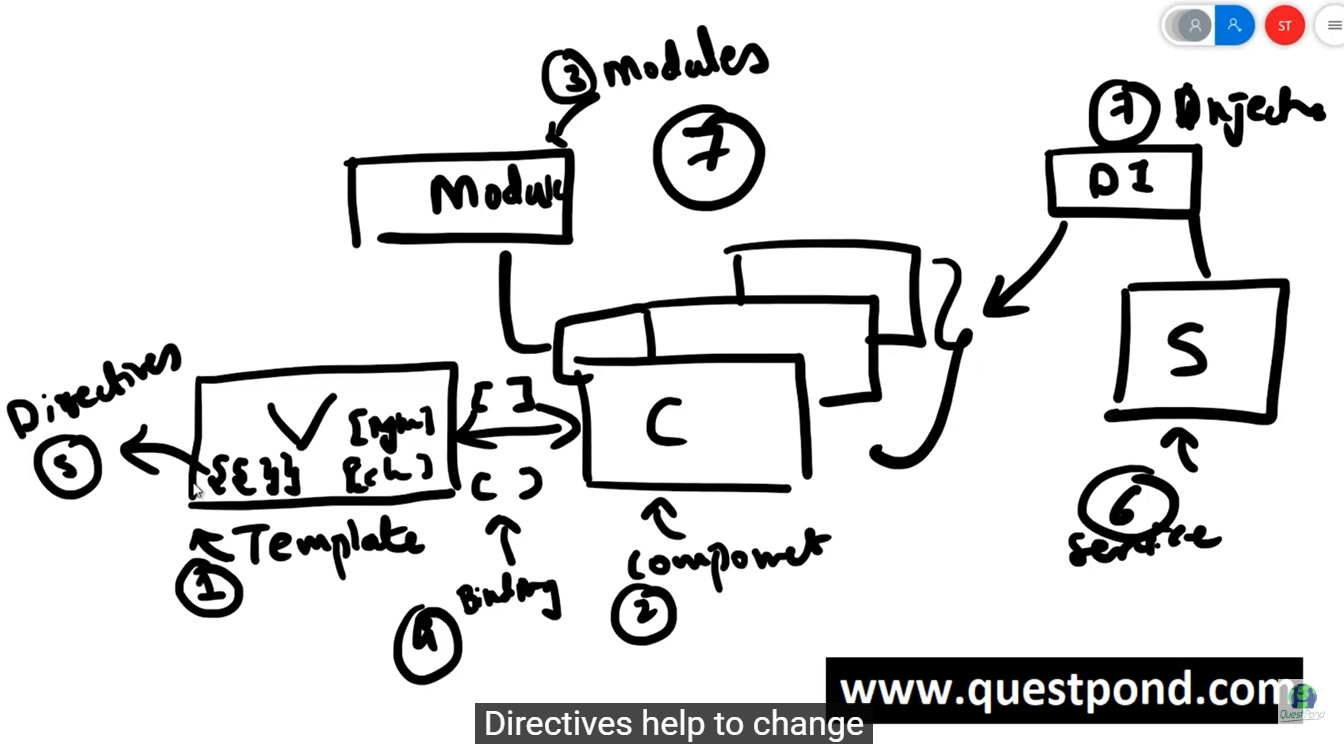 ST
3 Modules
7
7 Injects
DI
Module
S
Directives
5
V
[ngm]
{{ }}
[ ]
( )
C
Template
1
Binding
4
Componet
2
6
service
www.questpond.com
QuestPond
Directives help to change